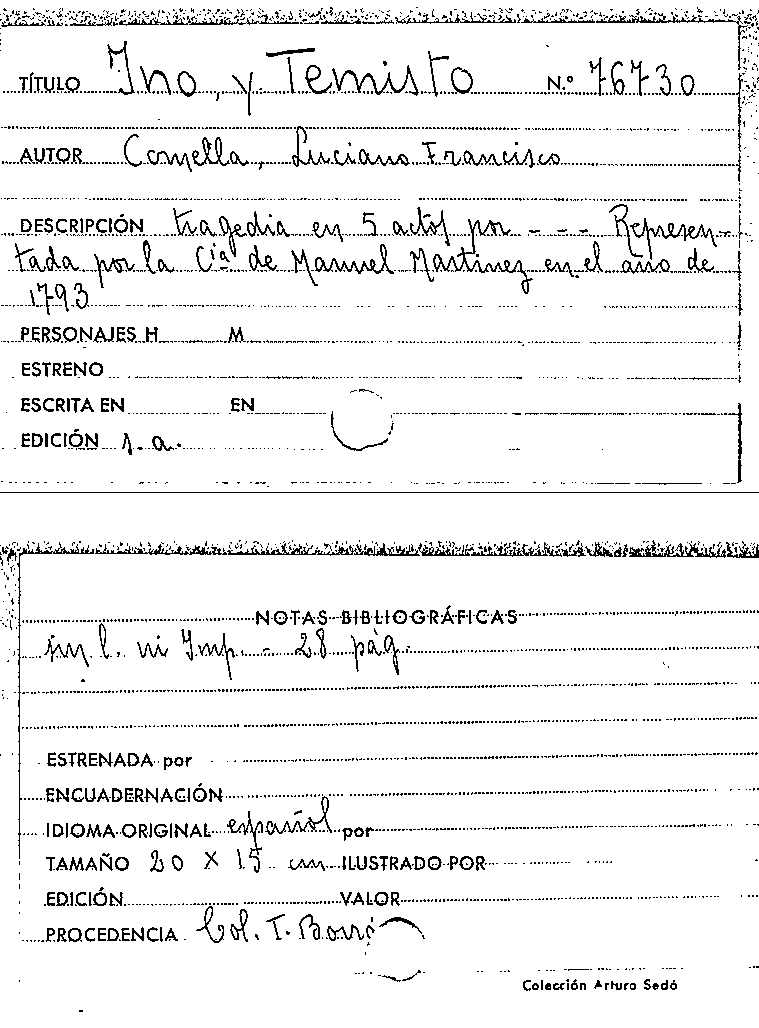 TÍTULO Ino, y Temisto N.º 76730
AUTOR Comella, Luciano Francisco
DESCRIPCIÓN tragedia en 5 actos por - - - Represen-
tada por la Cía de Manuel Martinez en el año de
1793
PERSONAJES H M
ESTRENO
ESCRITA EN EN
EDICIÓN s. a.
NOTAS BIBLIOGRÁFICAS
sin l. ni Imp. - 28 pág.
ESTRENADA por
ENCUADERNACIÓN
IDIOMA ORIGINAL español por
TAMAÑO 20 X 15 cm ILUSTRADO POR
EDICIÓN VALOR
PROCEDENCIA Col. T. Borrás
Colección Arturo Sedó